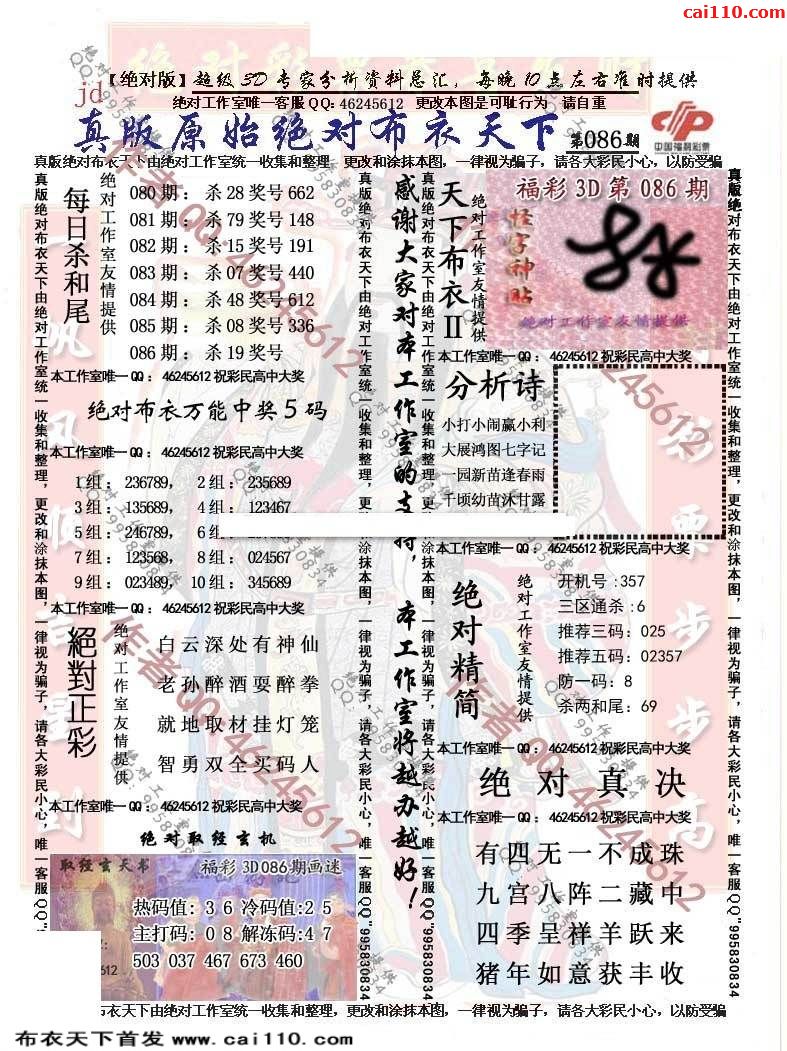 cai110.com
【绝对版】超级3D专家分析资料总汇，每晚10点左右准时提供
绝对工作室唯一客服QQ:46245612 更改本图是可耻行为 请自重
jd
真版原始绝对布衣天下 第086期
中国福利彩票
真版绝对布衣天下由绝对工作室统一收集和整理，更改和涂抹本图，一律视为骗子，请各大彩民小心，以防受骗
每日杀和尾
绝对工作室友情提供
080期：杀28奖号662
081期：杀79奖号148
082期：杀15奖号191
083期：杀07奖号440
084期：杀48奖号612
085期：杀08奖号336
086期：杀19奖号
本工作室唯一QQ：46245612祝彩民高中大奖
绝对布衣万能中奖5码
本工作室唯一QQ：46245612祝彩民高中大奖
1组：236789， 2组：235689
3组：135689， 4组：123467
5组：246789， 6组
7组：123568， 8组：024567
9组：023489， 10组：345689
本工作室唯一QQ：46245612祝彩民高中大奖
絕對正彩
绝对工作室友情提供
白云深处有神仙
老孙醉酒耍醉拳
就地取材挂灯笼
智勇双全买码人
本工作室唯一QQ：46245612祝彩民高中大奖
绝对取经玄机
取经玄天书 福彩3D086期画迷
热码值:36冷码值:25
主打码:08解冻码:47
503 037 467 673 460
感谢大家对本工作室的支持，本工作室将越办越好！
天下布衣II
绝对工作室友情提供
福彩3D第086期
怪字神贴
绝对工作室友情提供
本工作室唯一QQ：46245612祝彩民高中大奖
分析诗
小打小闹赢小利
大展鸿图七字记
一园新苗逢春雨
千顷幼苗沐甘露
本工作室唯一QQ：46245612祝彩民高中大奖
绝对精简
绝对工作室友情提供
开机号:357
三区通杀:6
推荐三码:025
推荐五码:02357
防一码:8
杀两和尾:69
本工作室唯一QQ：46245612祝彩民高中大奖
绝对真决
本工作室唯一QQ：46245612祝彩民高中大奖
有四无一不成珠
九宫八阵二藏中
四季呈祥羊跃来
猪年如意获丰收
真版绝对布衣天下由绝对工作室统一收集和整理，更改和涂抹本图，一律视为骗子，请各大彩民小心，唯一客服QQ"995830834
布衣天下由绝对工作室统一收集和整理，更改和涂抹本图，一律视为骗子，请各大彩民小心，以防受骗
布衣天下首发 www.cai110.com